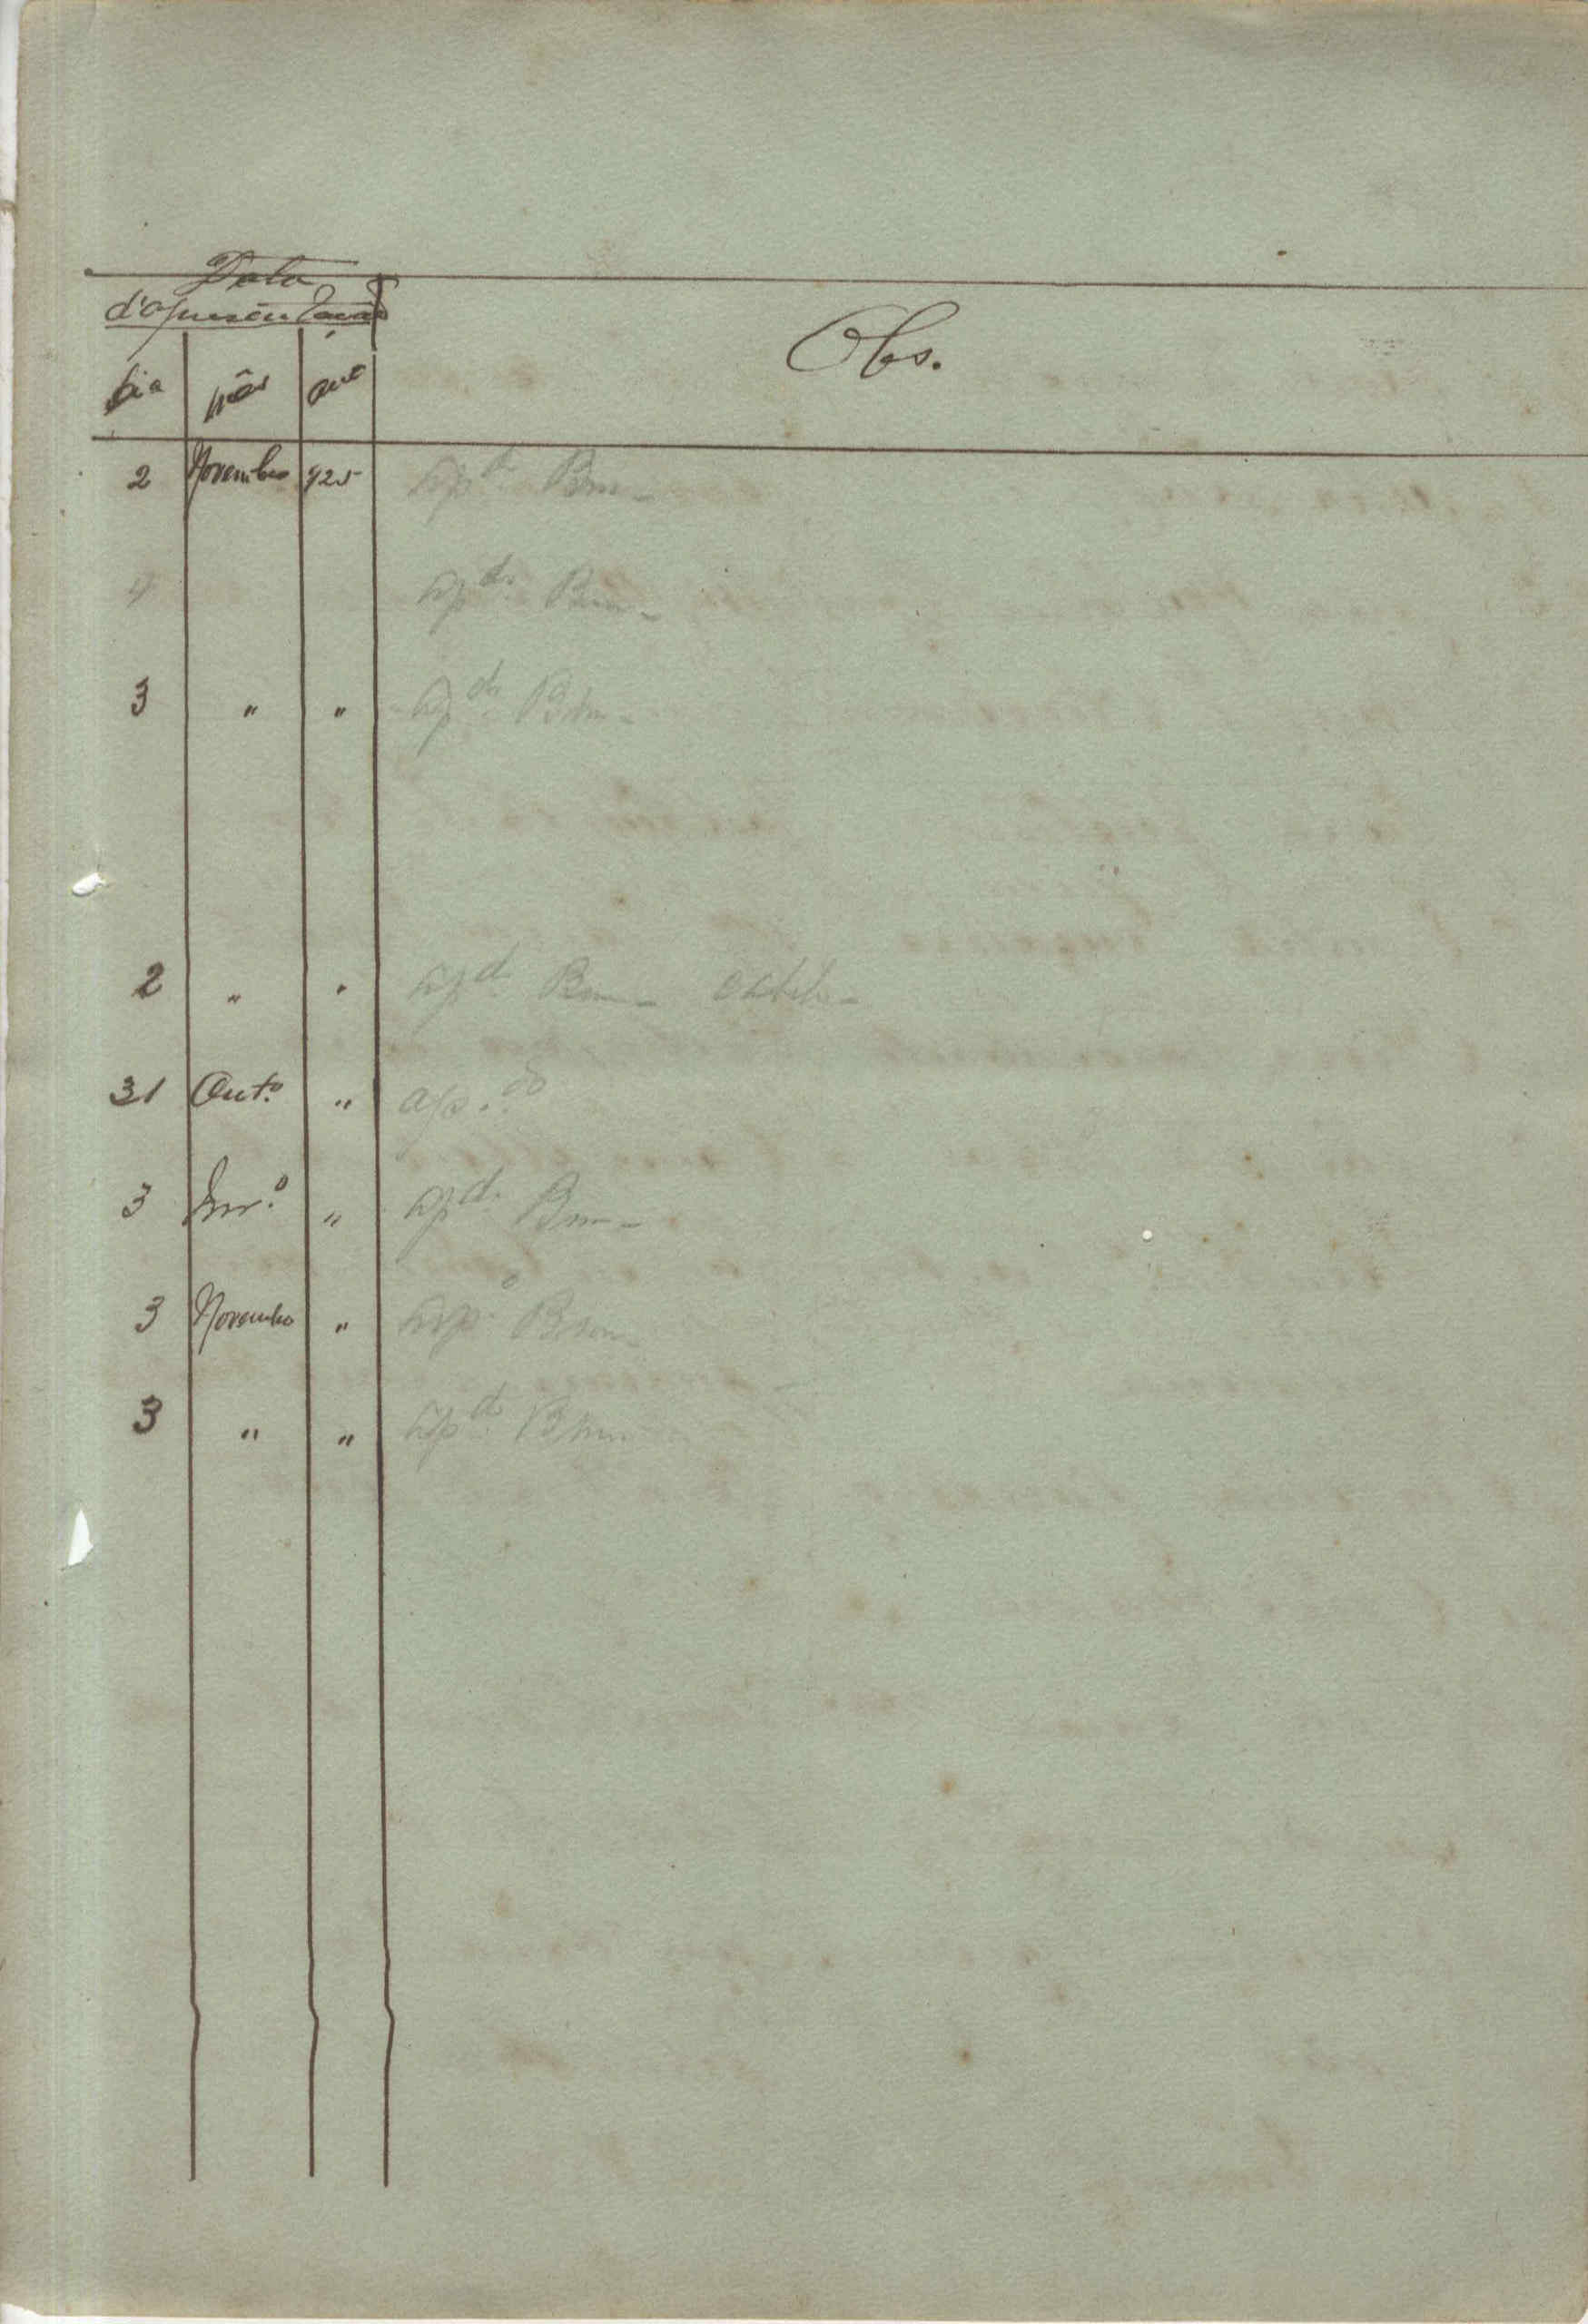 Data
d'apresentação
dia mês ano Obs.
2 Novembro 925 apdo Bom -
4 apdo Bom -
3 " " apdo Bom -
2 " " apdo Bom -
31 Out.º " ap.do
3 " apdo Bom -
3 Novembro " apº Bom
3 " " apdo Bom